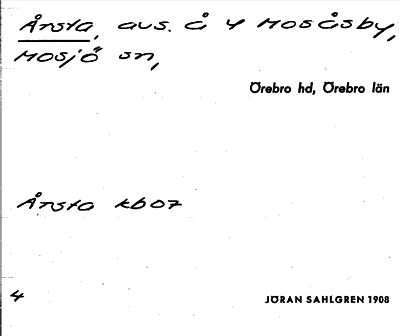 Årsta, avs. å 4 Mosåsby,
Mosjö sn,
Örebro hd, Örebro län
Årsta kb07
4
JÖRAN SAHLGREN 1908